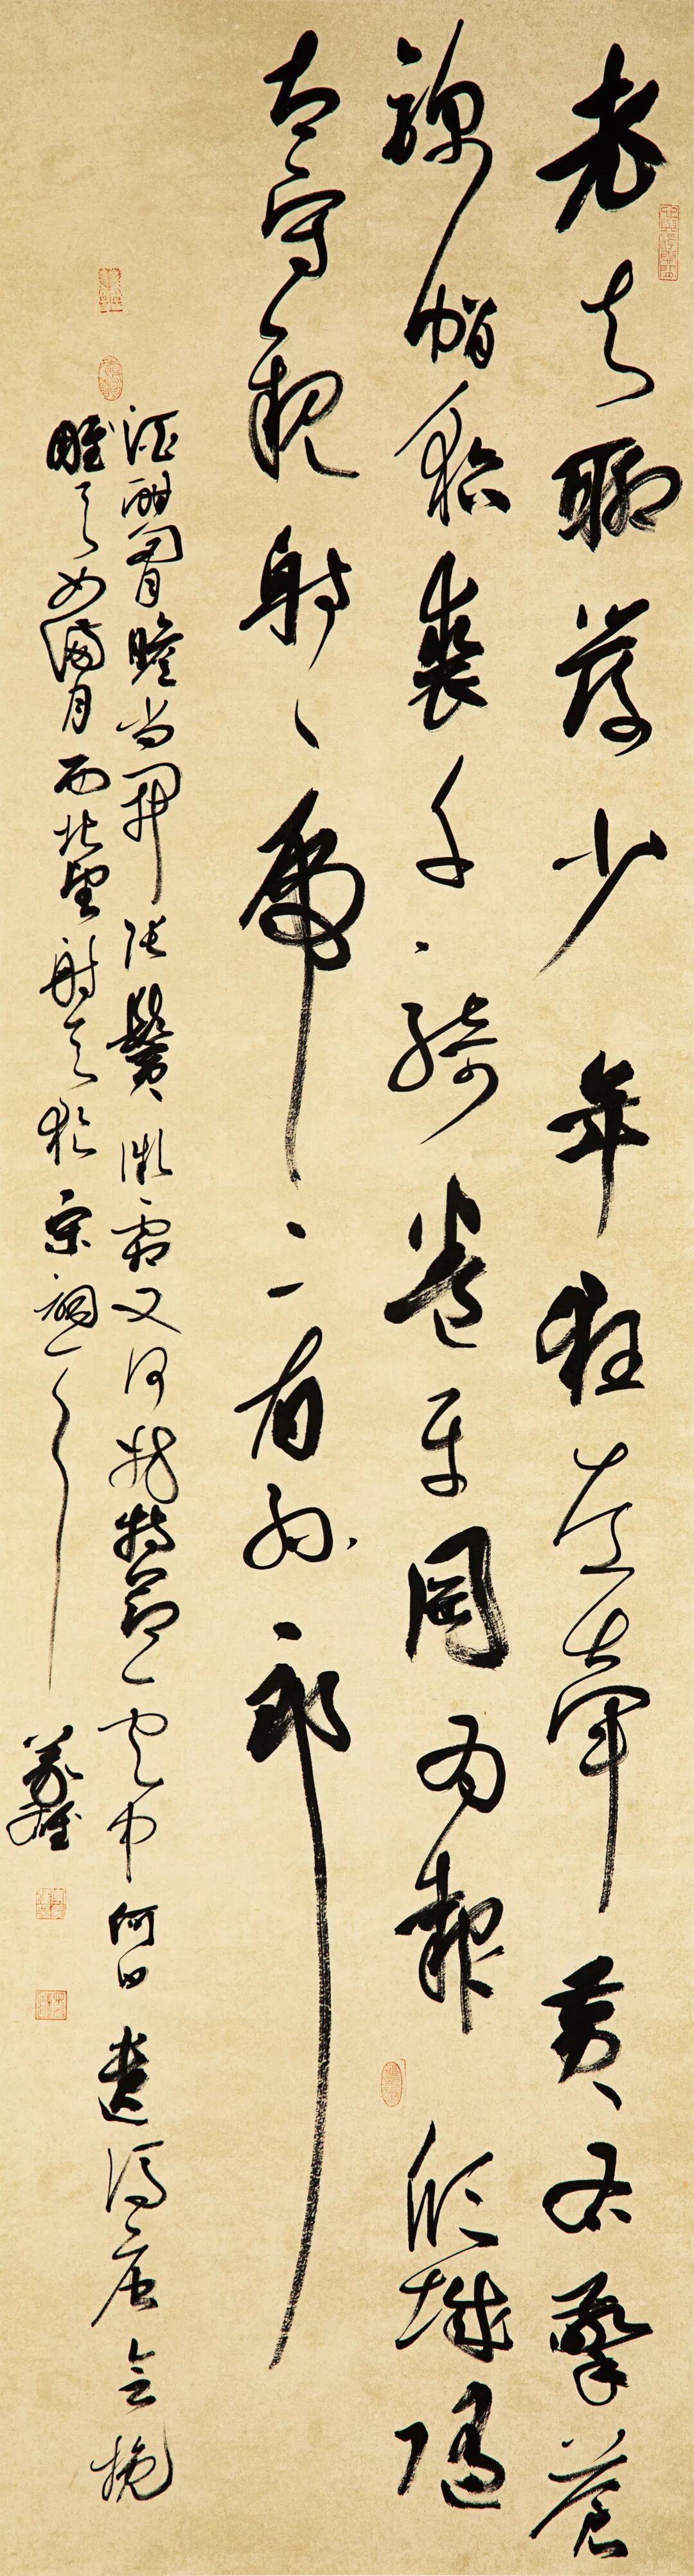 老夫聊發少年狂左牽黃右擎蒼
錦帽貂裘千騎卷平岡為報傾城隨
太守親射虎看孫郎
酒酣胸膽尚開張鬢微霜又何妨持節雲中何日遣馮唐會挽
雕弓如滿月西北望射天狼宋詞一首